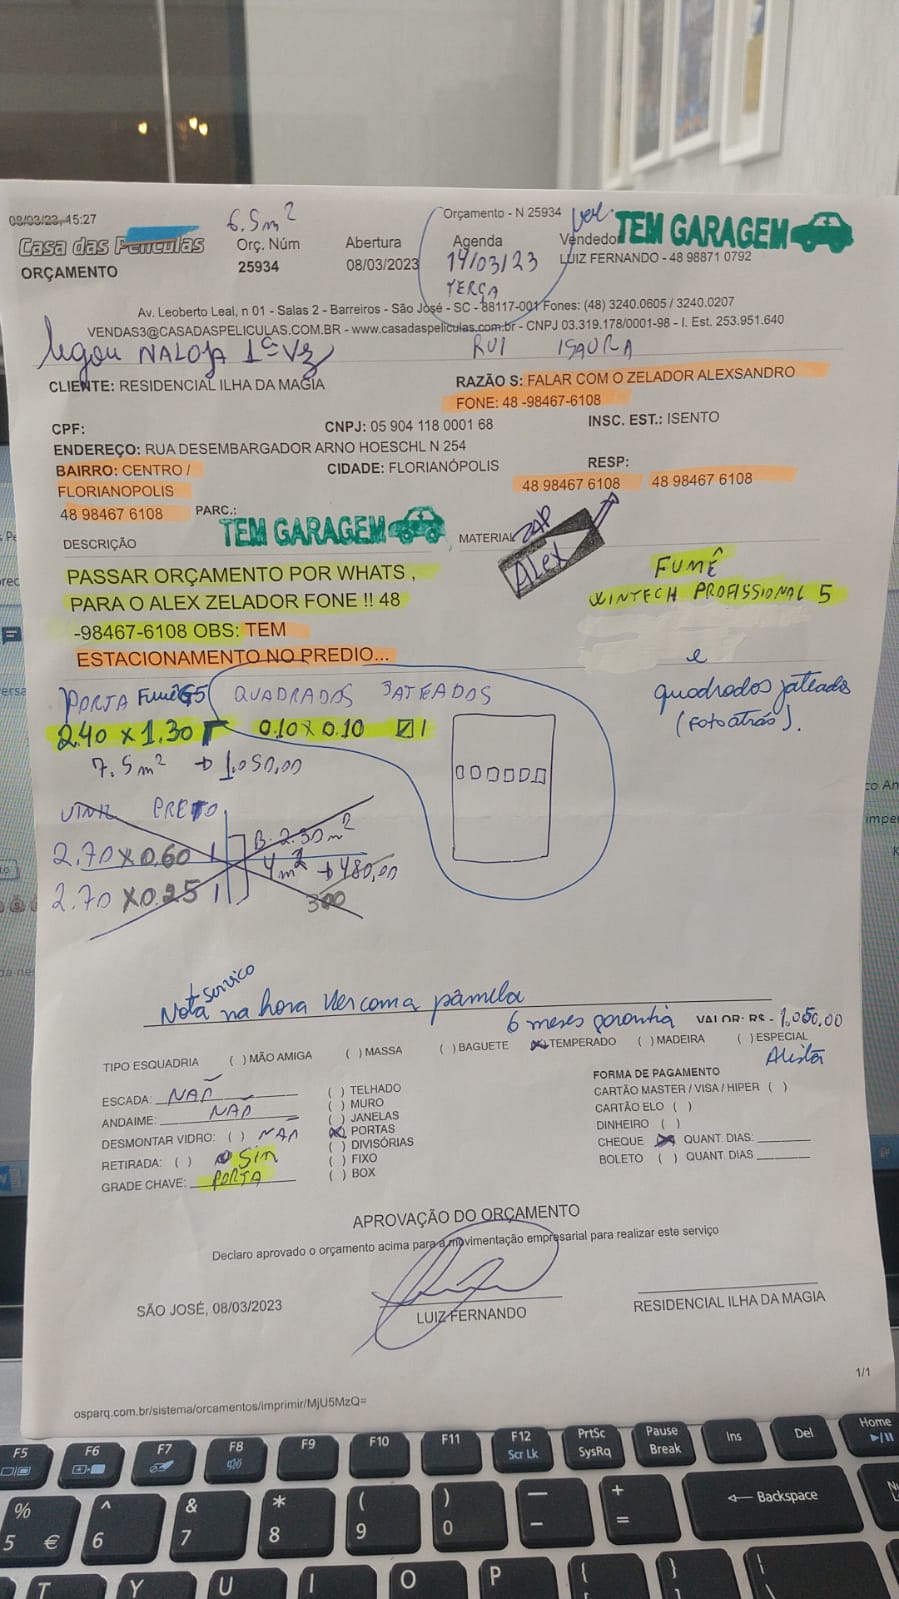 08/03/23, 15:27
Orçamento - N 25934
6.5m²
TEM GARAGEM
Casa das Películas
Orç. Núm
Abertura
Agenda
Vendedo
ORÇAMENTO
25934
08/03/2023
14/03/23
LUIZ FERNANDO - 48 98871 0792
TERÇA
Av. Leoberto Leal, n 01 - Salas 2 - Barreiros - São José - SC - 88117-001 Fones: (48) 3240.0605 / 3240.0207
VENDAS3@CASADASPELICULAS.COM.BR - www.casadaspeliculas.com.br - CNPJ 03.319.178/0001-98 - I. Est. 253.951.640
ligou NA LOJA 1ª VZ
RUI ISAURA
CLIENTE: RESIDENCIAL ILHA DA MAGIA
RAZÃO S: FALAR COM O ZELADOR ALEXSANDRO
FONE: 48 -98467-6108
CPF:
CNPJ: 05 904 118 0001 68
INSC. EST.: ISENTO
ENDEREÇO: RUA DESEMBARGADOR ARNO HOESCHL N 254
BAIRRO: CENTRO /
FLORIANOPOLIS
CIDADE: FLORIANÓPOLIS
RESP:
48 98467 6108
PARC.:
48 98467 6108
48 98467 6108
TEM GARAGEM
DESCRIÇÃO
MATERIAL
ZAP
ALEX
PASSAR ORÇAMENTO POR WHATS ,
PARA O ALEX ZELADOR FONE !! 48
-98467-6108 OBS: TEM
ESTACIONAMENTO NO PREDIO...
FUMÊ
WINTECH PROFISSIONAL 5
e
quadrados jateados
(foto atrás).
PORTA Fumê G5
QUADRADOS JATEADOS
2.40 x 1.30
0.10 x 0.10
1
7.5m² → 1.050,00
VINIL PRETO
2.70 x 0.60 1
B. 2.30m²
4m² → 480,00
2.70 x 0.25 1
300
+ serviço
Nota na hora Ver com a pâmela
6 meses garantia
VALOR: R$ - 1.050,00
TIPO ESQUADRIA
( ) MÃO AMIGA
( ) MASSA
( ) BAGUETE
(X) TEMPERADO
( ) MADEIRA
( ) ESPECIAL
ESCADA: NÃO
ANDAIME: NÃO
DESMONTAR VIDRO: ( ) NÃO
RETIRADA: ( ) SIM
GRADE CHAVE: PORTA
( ) TELHADO
( ) MURO
( ) JANELAS
(X) PORTAS
( ) DIVISÓRIAS
( ) FIXO
( ) BOX
FORMA DE PAGAMENTO
CARTÃO MASTER / VISA / HIPER ( )
CARTÃO ELO ( )
DINHEIRO ( )
CHEQUE (X) QUANT. DIAS:
BOLETO ( ) QUANT. DIAS
APROVAÇÃO DO ORÇAMENTO
Declaro aprovado o orçamento acima para a movimentação empresarial para realizar este serviço
SÃO JOSÉ, 08/03/2023
LUIZ FERNANDO
RESIDENCIAL ILHA DA MAGIA
1/1
osparq.com.br/sistema/orcamentos/imprimir/MjU5MzQ=
F5
F6
F7
F8
F9
F10
F11
F12
Scr Lk
PrtSc
SysRq
Pause
Break
Ins
Del
Home
% 5 €
^ 6
& 7
* 8
( 9
) 0
Backspace
T Y U I O P